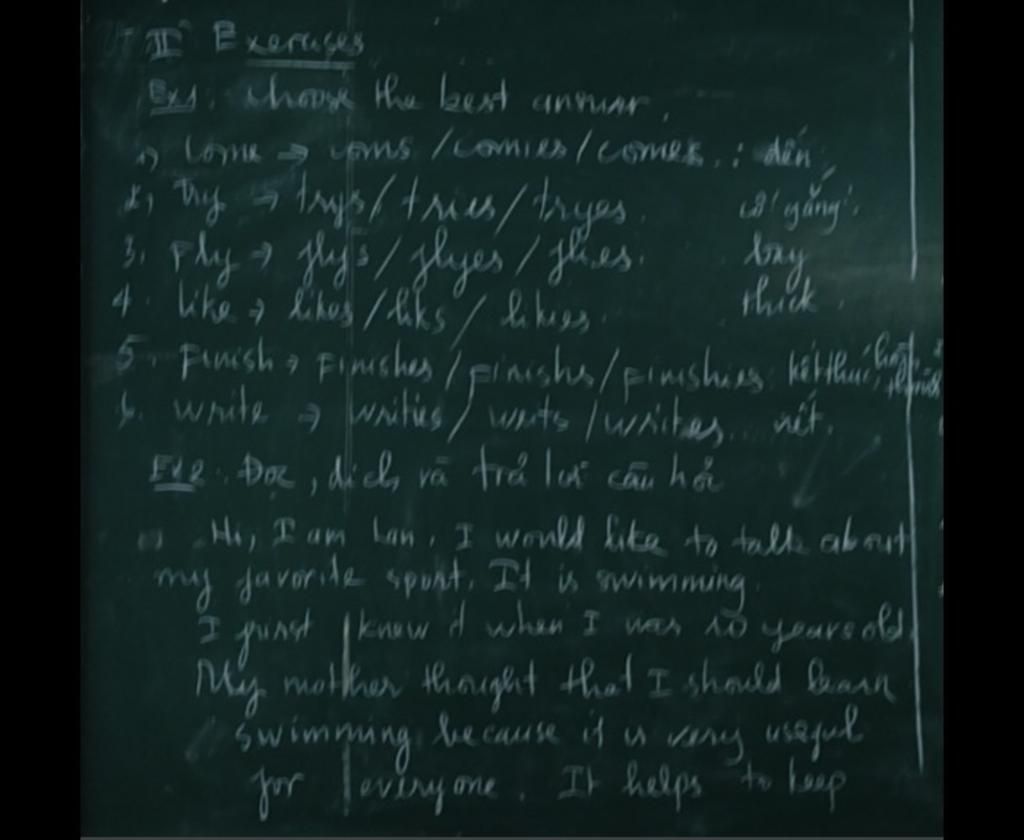 II Exercises
Ex1. Choose the best answer.
1) Come → coms / comies / comes. : đến
2) Try → trys / tries / tryes. cố gắng.
3. Fly → flys / flyes / flies. bay
4. like → likes / liks / likies. thick.
5. Finish → Finishes / finishs / finishies kết thúc,
6. write → writies / writs / writes. viết.
Ex2. Đọc, dịch và trả lời câu hỏi
Hi, I am Lan. I would like to talk about
my favorite sport. It is swimming.
I first knew it when I was 10 years old.
My mother thought that I should learn
swimming because it is very useful
for everyone. It helps to keep